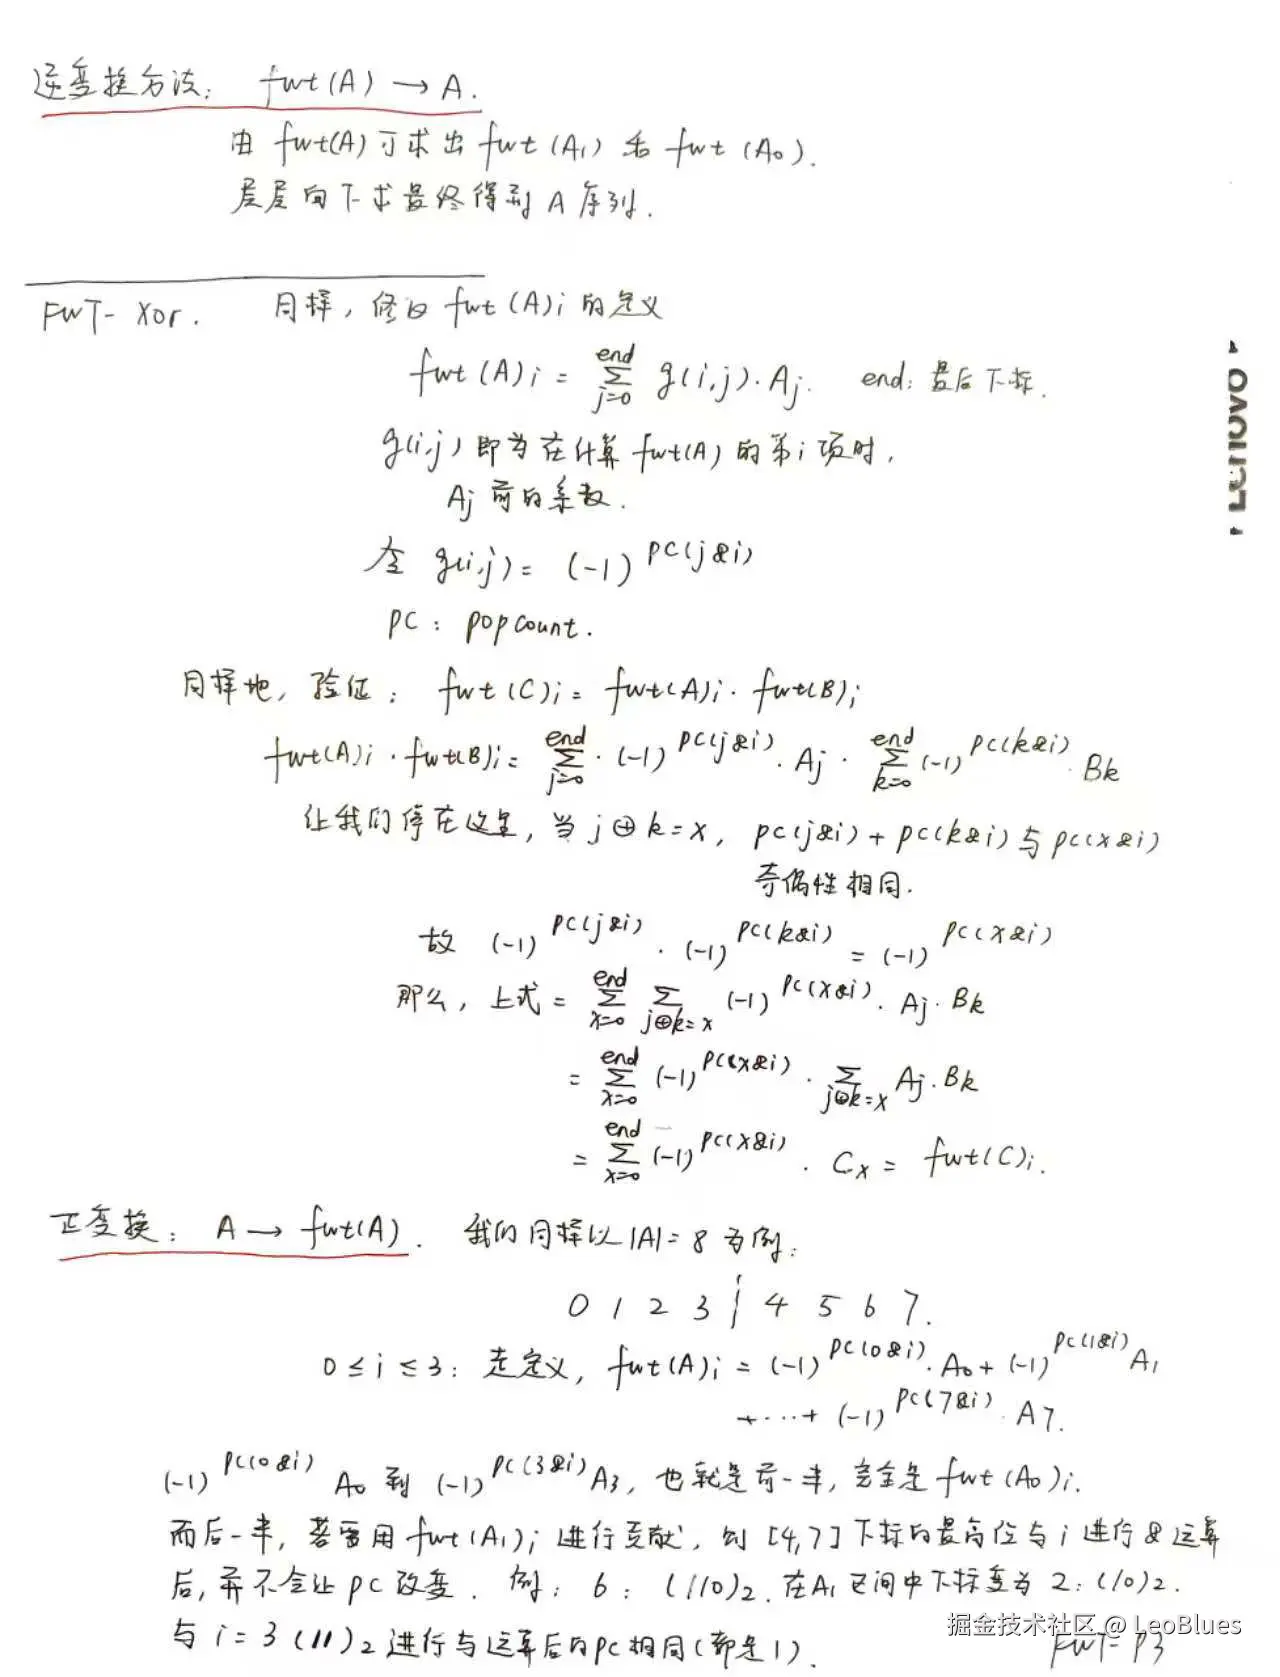 逆变换方法: fwt(A) → A.
由 fwt(A) 可求出 fwt(A₁) 和 fwt(A₀).
层层向下求最终得到 A 序列.
FWT- Xor. 同样, 修改 fwt(A)i 的定义
fwt(A)i = ∑_{j=0}^{end} g(i,j)·Aj. end: 最后下标.
g(i,j) 即为在计算 fwt(A) 的第 i 项时,
Aj 前的系数.
令 g(i,j) = (-1)^{pc(j&i)}
pc: popcount.
同样地, 验证: fwt(C)i = fwt(A)i · fwt(B)i
fwt(A)i · fwt(B)i = ∑_{j=0}^{end} · (-1)^{pc(j&i)} · Aj · ∑_{k=0}^{end} (-1)^{pc(k&i)} · Bk
让我们停在这里, 当 j⊕k=x, pc(j&i) + pc(k&i) 与 pc(x&i)
奇偶性相同.
故 (-1)^{pc(j&i)} · (-1)^{pc(k&i)} = (-1)^{pc(x&i)}
那么, 上式 = ∑_{x=0}^{end} ∑_{j⊕k=x} (-1)^{pc(x&i)} · Aj · Bk
= ∑_{x=0}^{end} (-1)^{pc(x&i)} · ∑_{j⊕k=x} Aj · Bk
= ∑_{x=0}^{end} (-1)^{pc(x&i)} · Cx = fwt(C)i.
正变换: A → fwt(A). 我们同样以 |A| = 8 为例:
0 1 2 3 ¦ 4 5 6 7.
0 ≤ i ≤ 3: 走定义, fwt(A)i = (-1)^{pc(0&i)} · A₀ + (-1)^{pc(1&i)} A₁
+ ··· + (-1)^{pc(7&i)} · A7.
(-1)^{pc(0&i)} A₀ 到 (-1)^{pc(3&i)} A₃, 也就是前一半, 完全是 fwt(A₀)i.
而后一半, 若要用 fwt(A₁)i 进行贡献, 则 [4,7] 下标的最高位与 i 进行 & 运算
后, 并不会让 pc 改变. 例: 6: (110)₂. 在 A₁ 区间中下标变为 2: (10)₂.
与 i = 3 (11)₂ 进行与运算后的 pc 相同 (都是 1).
FWT- P3
掘金技术社区 @ LeoBlues